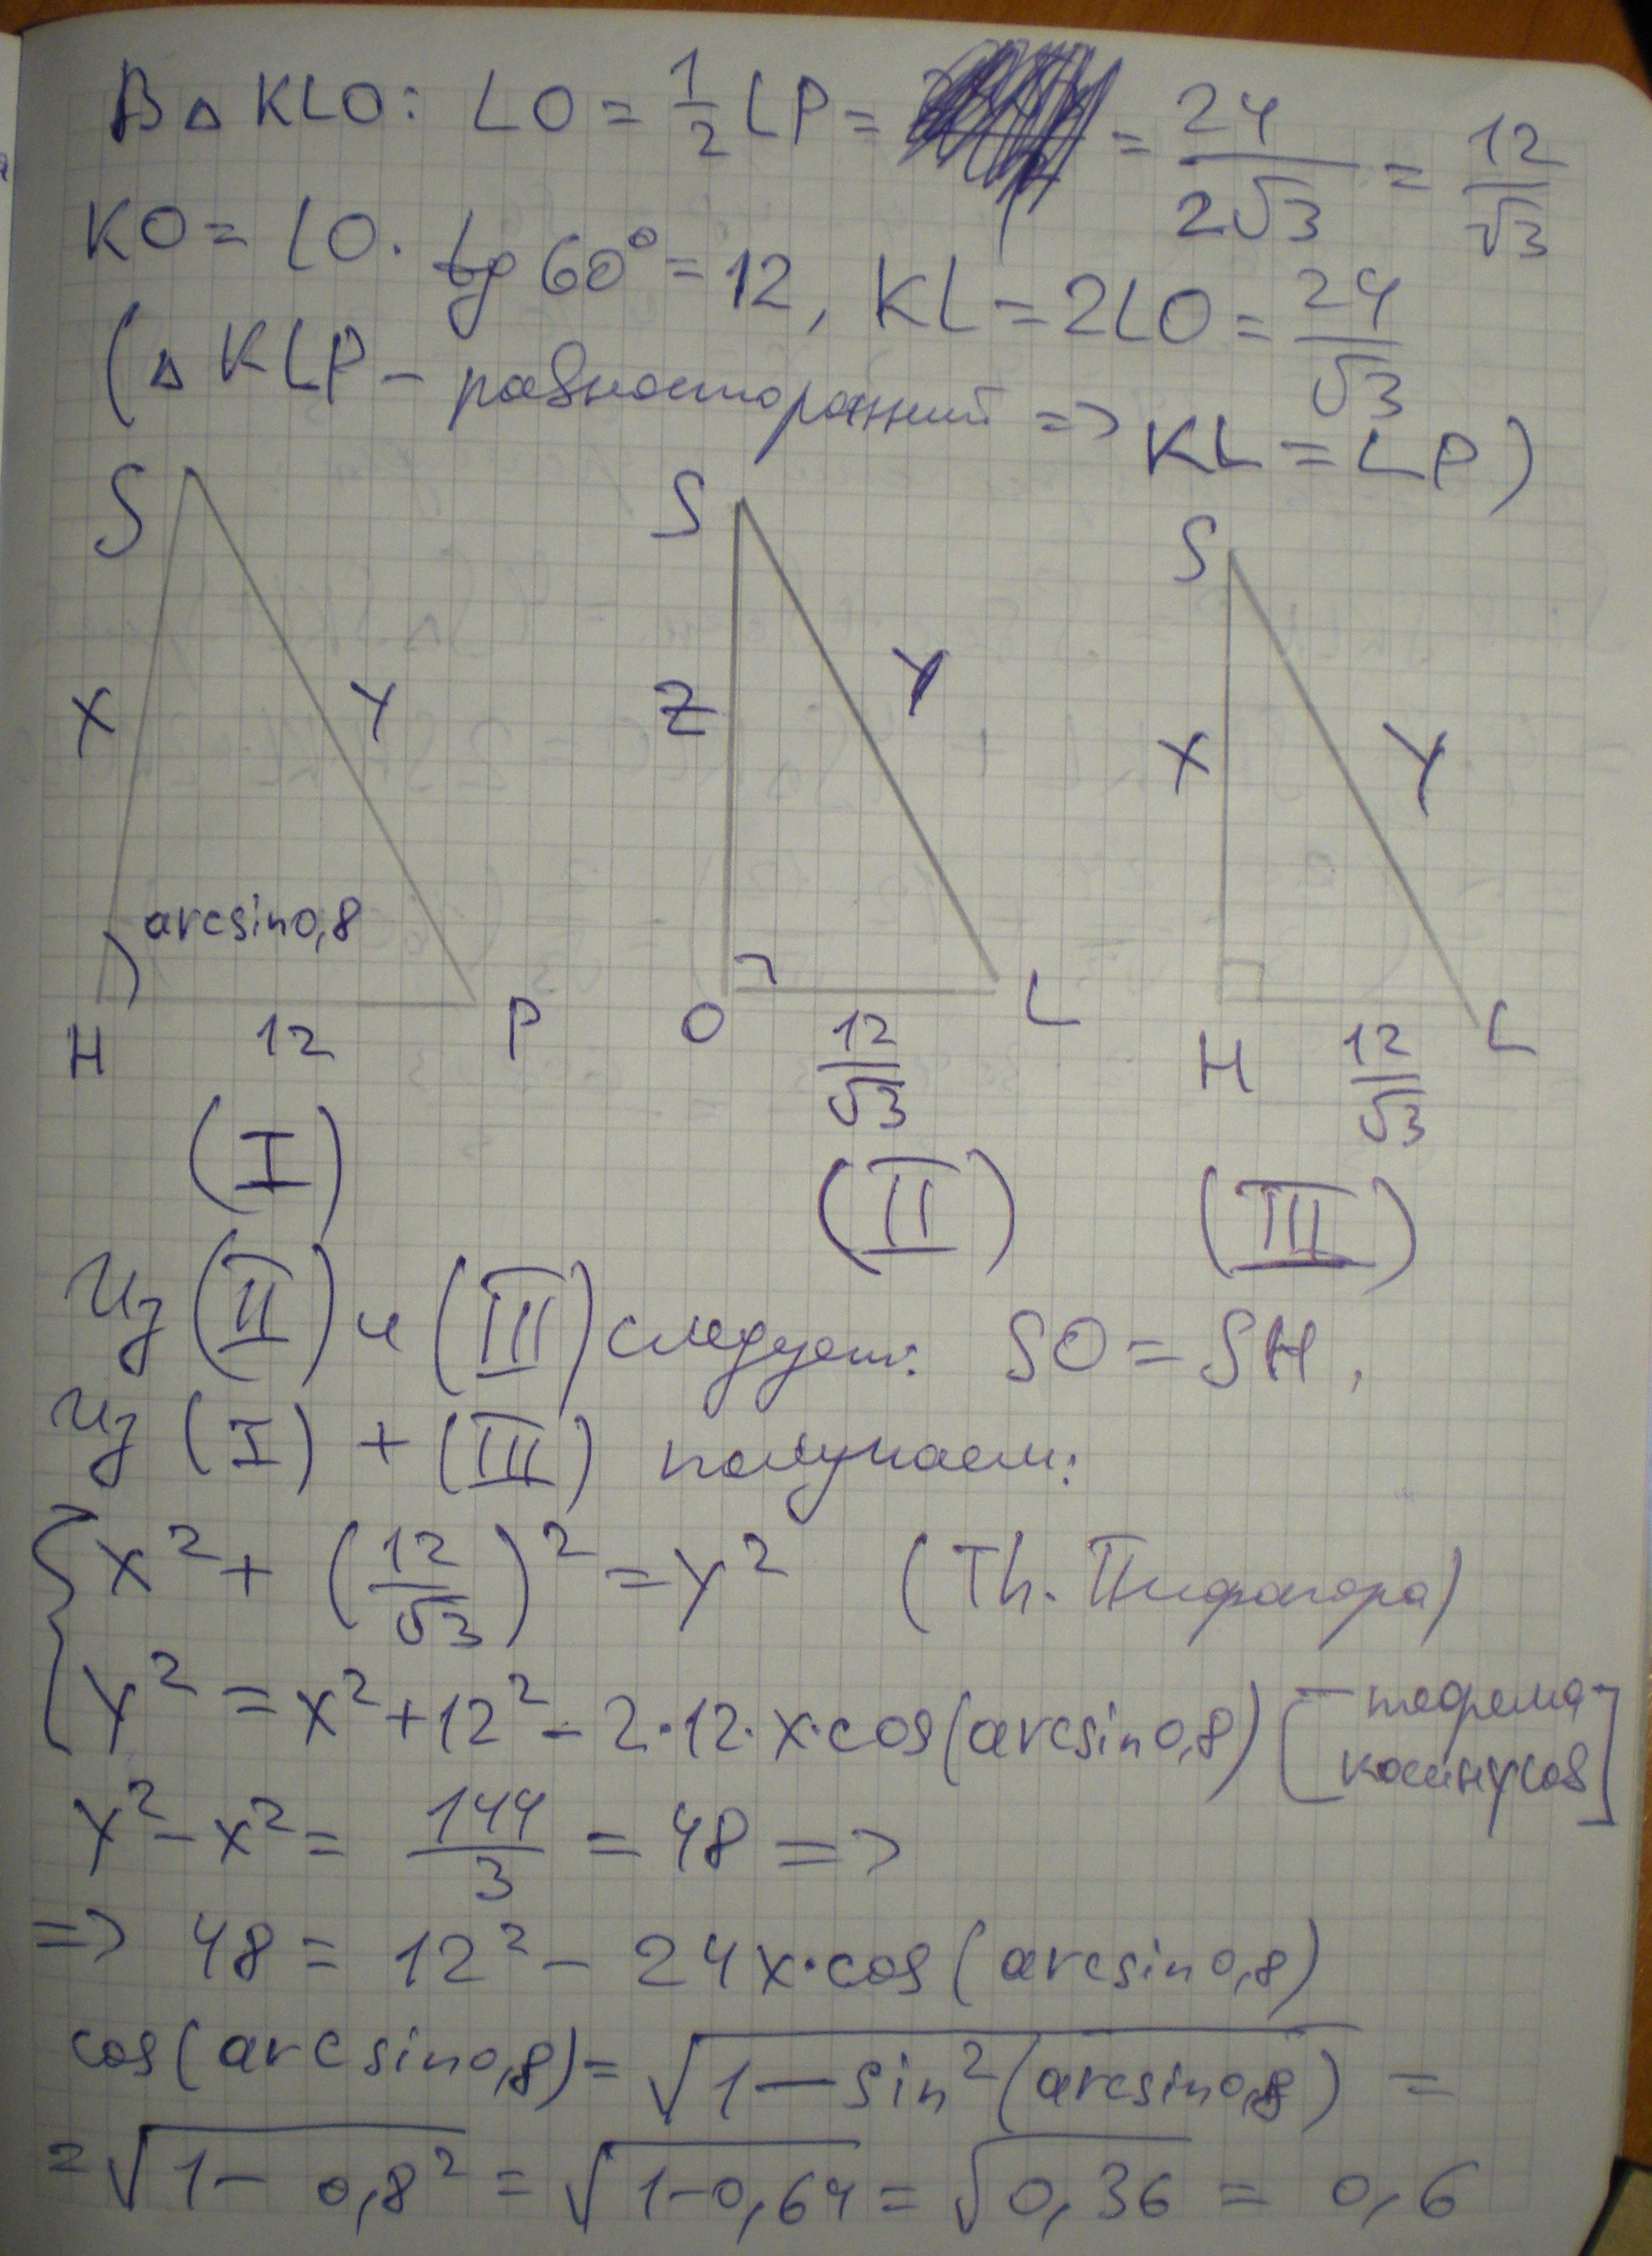 В △ KLO: LO = 1/2 LP = = 24/(2√3) = 12/√3
KO = LO · tg 60° = 12, KL = 2LO = 24/√3
(△ KLP – равносторонний => KL = LP)
S S S
X Y Z Y X Y
arcsin0,8
H 12 P O 12/√3 L H 12/√3 L
(I) (II) (III)
Из (II) и (III) следует: SO = SH,
Из (I) + (III) получаем:
{ x² + (12/√3)² = y² (Th. Пифагора)
y² = x² + 12² - 2·12·x·cos(arcsin0,8) [теорема косинусов]
y² - x² = 144/3 = 48 =>
=> 48 = 12² - 24x·cos(arcsin0,8)
cos(arcsin0,8) = √(1 - sin²(arcsin0,8)) =
= √(1 - 0,8²) = √(1-0,64) = √0,36 = 0,6